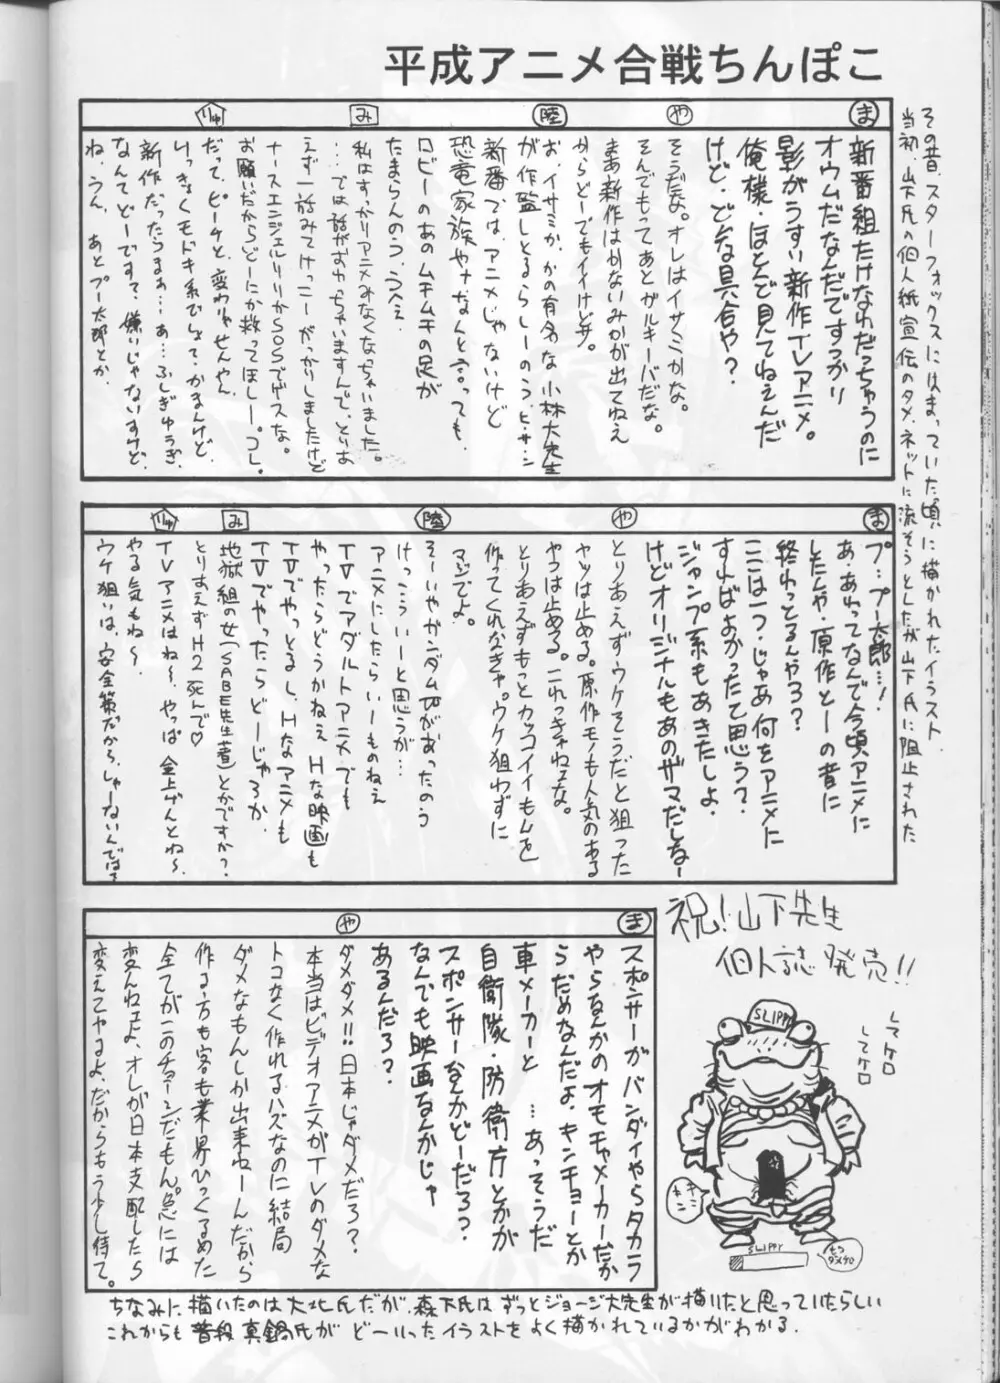 平成アニメ合戦ちんぽこ
その昔、スターフォックスにはまっていた頃に描かれたイラスト
当初、山下氏の個人紙宣伝のタメ、ネットに流そうとしたが山下氏に阻止された
ま
新番組たけなわだっちゅうのに
オウムだなんだですっかり
影がうすい新作TVアニメ。
俺様・ほとんど見てねぇんだ
けど、どんな具合や?
や
そうだな。オレはイサミかな。
そんでもってあとガルキーバだな。
まあ新作はかないみかが出てねぇ
からどーでもイイけどサ。
陸
お、イサミか、かの有名な小林大先生
が作監しとるらしーのう、ヒ・サ・シ
新番では、アニメじゃないけど
恐竜家族やナなんと言っても、
ロビーのあのムチムチの足が
たまらんのぅ、うへぇ
み
私はすっかりアニメみなくなっちゃいました。
…では話がおわっちゃいますんで、とりあ
えず一話みてけっこーがっかりしましたけど
ナースエンジェルりりかSOSでゲスな。
お願いだからどーにか救ってほしー。コレ。
りゅ
だって、ピーチと、変わりゃせんやん
けっきょくモドキ系でしょて・かまんけど、
新作だったらまぁ…あ…ふしぎゆうぎ、
なんてどーですて、嫌いじゃないすけど、
ね、うん、あとプー太郎とか、
ま
プ…プー太郎…!
あ・あれってなんで今頃アニメに
したんや・原作とーの昔に
終わっとるんやろ?
ここは一つ・じゃあ何をアニメに
すればよかったて思う?
ジャンプ系もあきたしよ・
けどオリジナルもあのザマだしなー
や
とりあえずウケそうだと狙った
ヤツは止める。原作モノも人気のある
やつは止める。これっきゃねェな。
とりあえずもっとカッコイイもんを
作ってくれなきゃ。ウケ狙わずに
マジでよ。
陸
そーいやガンダムHがあったのう
けっこういーと思うが…
アニメにしたらいーものねぇ
TVでアダルトアニメでも
やったらどうかねぇ Hな映画も
TVでやっとるし、Hなアニメも
TVでやったらどーじゃろか、
み
地獄組の女(SABE先生著)とかですか?
とりあえずH2死んで♡
りゅ
TVアニメはね〜、やっぱ金上げんとね〜、
やる気もね〜
ウケ狙いは、安全策だから、しゃーないんでは?
ま
スポンサーがバンダイやらタカラ
やらなんかのオモチャメーカーだか
らだめなんだよ、キンチョーとか
車メーカーと…あっそうだ
自衛隊・防衛庁とかが
スポンサーなんかどーだろ?
なんでも映画なんかじゃ
あるんだろ?
や
ダメダメ!!日本じゃダメだろ?
本当はビデオアニメがTVのダメな
トコなく作れるハズなのに結局
ダメなもんしか出来ねーんだから
作る方も客も業界ひっくるめた
全てがこのチョーシだもん。急には
変んねェよ、オレが日本支配したら
変えてやるよ、だからもう少し待て。
祝!山下先生
個人誌発売!!
SLIPPY
してケロ
してケロ
SLIPPY
もう
ダメケロ
ちなみに、描いたのは大北氏だが、森下氏はずっとジョージ大先生が描いたと思っていたらしい
これからも普段真鍋氏がどーいったイラストをよく描かれているかがわかる.